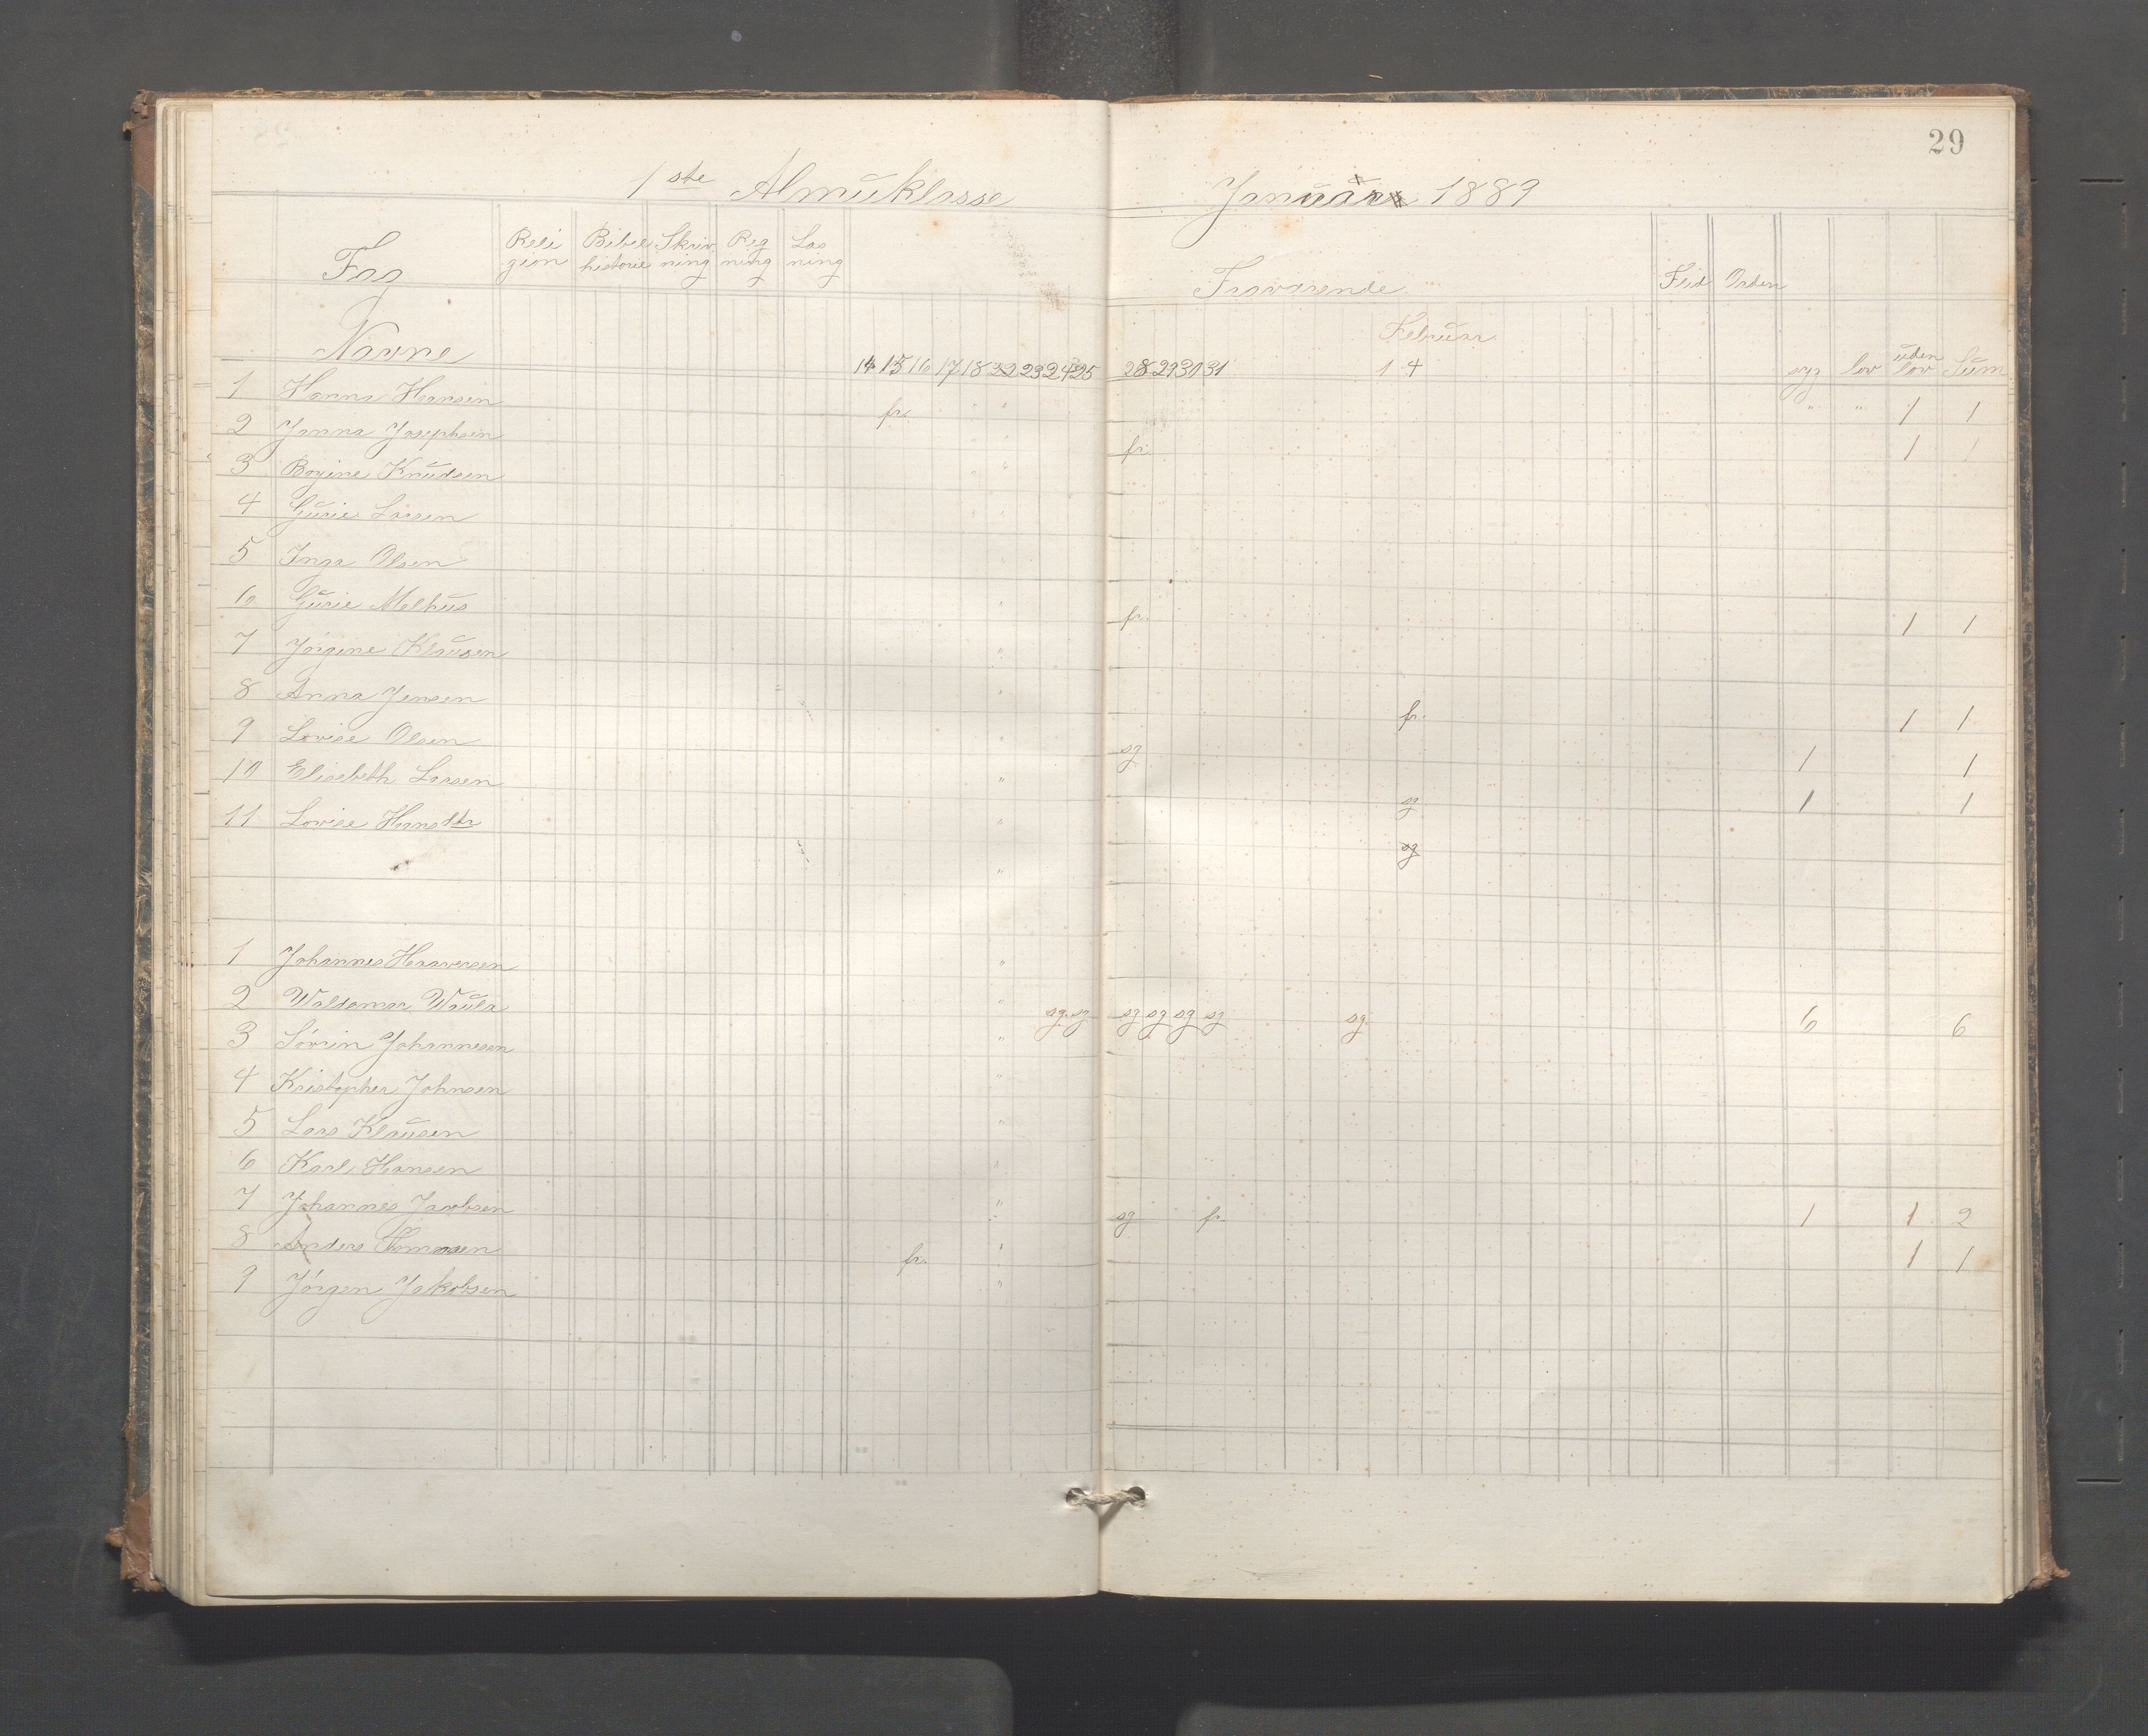 29
1ste Almuklasse Januar 1889
Fag Reli gion Bibel historie Skriv ning Reg ning Læs ning Fraværende Flid Orden
Navne Februar
14 15 16 17 18 22 23 24 25 28 29 30 31 1 4 syg lov uden lov Sum
1 Hanna Hansen fr. " " 1 1
2 Janna Josephsen fr. 1 1
3 Knudsen
4 Gurie Larsen
5 Inga Olsen
6 Gurie Melhus fr. 1 1
7 Jørgine Klausen "
8 Anna Jensen fr. 1 1
9 Lovise Olsen sg 1 1
10 Elisebeth Larsen " sg 1 1
11 Lovise Hansdtr " sg
1 Johannes "
2 Valdemar " sg. sg sg sg sg sg sg. 6 6
3 Sørrin Johannesen "
4 Kristopher Johnsen "
5 Lars Klausen "
6 Karl Hansen "
7 Johannes Jacobsen " sg fr. 1 1 2
8 Anders Tommesen fr. 1 1
9 Jørgen Jakobsen "